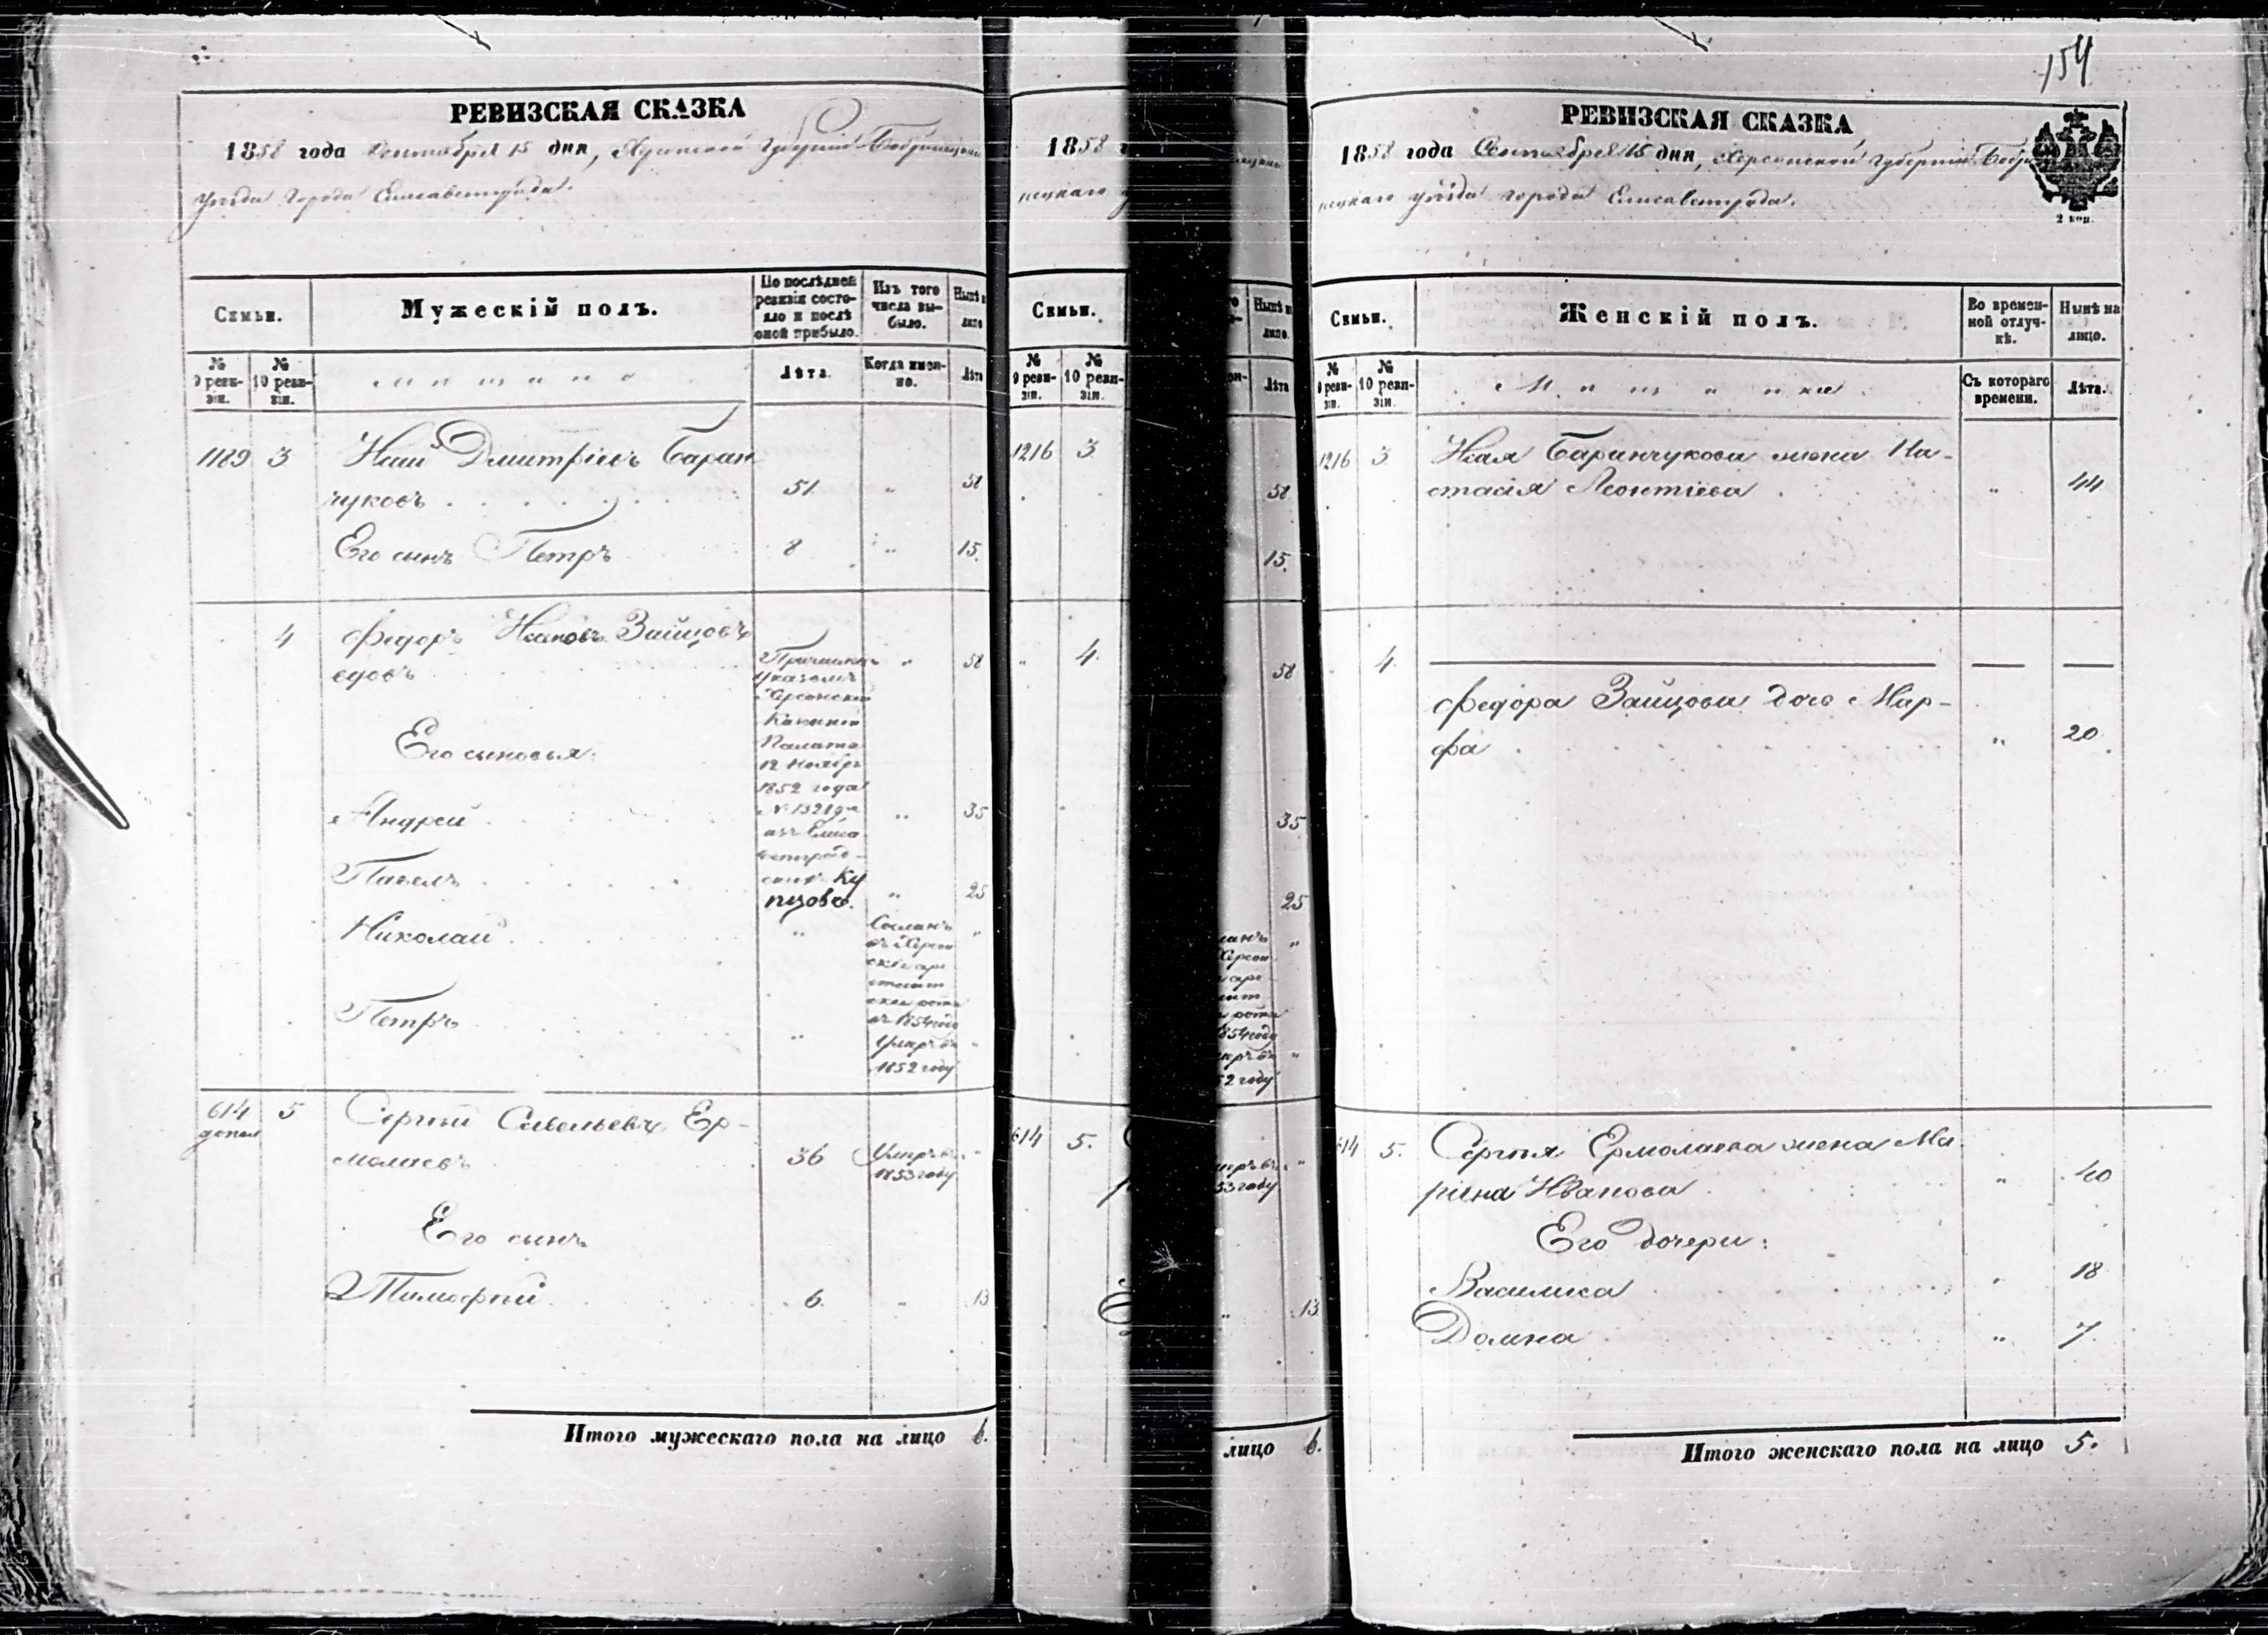 154
РЕВИЗСКАЯ СКАЗКА
1858 года Сентября 15 дня, Херсонской Губерніи Бобринецкаго
уѣзда города Елисаветграда.
Семьи.
Мужескій полъ.
По послѣдней ревизіи состояло и послѣ оной прибыло.
Изъ того числа выбыло.
Нынѣ на лицо
№ 9 ревизіи.
№ 10 ревизіи.
Мѣщане
Лѣта.
Когда именно.
Лѣта
1189 3 Дмитріевъ Баран
чуковъ 51 " 58
Его сынъ Петръ 8 " 15.
4 Федоръ Ивановъ Зайцовъ
едовъ " 58
Причислены
указомъ
Херсонской
Казенной
Палаты
12 Ноября
1852 года
№ 13219
изъ Елиса
ветград
скихъ Ку
пцовъ.
Его сыновья:
Андрей " 35
Павелъ " 25
Николай " "
Сосланъ
въ Херсон
скія аре
стант
скія роты
въ 1854 году
Петръ " "
Умеръ въ
1852 году
614 5 Сергѣй Савельевъ Ер-
допол
молаевъ 36 Умеръ въ "
1853 году
Его сынъ
Тимофѣй 6. " 13
Итого мужескаго пола на лицо 6.
1858 г
нецкаго у
Семьи.
№ 9 ревизіи.
№ 10 ревизіи.
1216 3
" 4.
614 5.
Нынѣ на лицо.
Лѣта
58
15.
58
35
25
" 13
лицо 6.
РЕВИЗСКАЯ СКАЗКА
1858 года Сентября 15 дня, Херсонской Губерніи Бобри
нецкаго уѣзда города Елисаветграда.
2 коп.
Семьи.
Женскій полъ.
Во временной отлучкѣ.
Нынѣ на лицо.
№ 9 ревизіи.
№ 10 ревизіи.
Мѣщанки
Съ котораго времени.
Лѣта.
1216 3 Баранчукова жена На-
стасія Леонтіева " 44
4.
Федора Зайцова дочь Мар-
фа " 20
614 5. Сергѣя Ермолаева жена Ма
рина Иванова " 40
Его дочери:
Василиса " 18
Домна " 7
Итого женскаго пола на лицо 5.